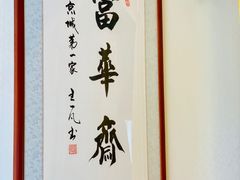 富華齋
京城第一家 一凡书